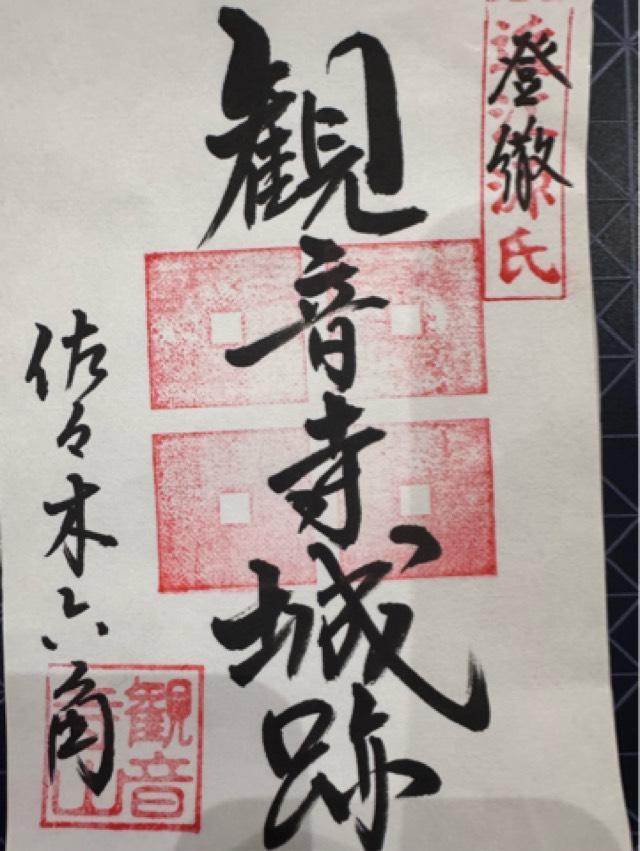 登徹
近江源氏
観音寺城跡
佐々木六角
観音
寺山